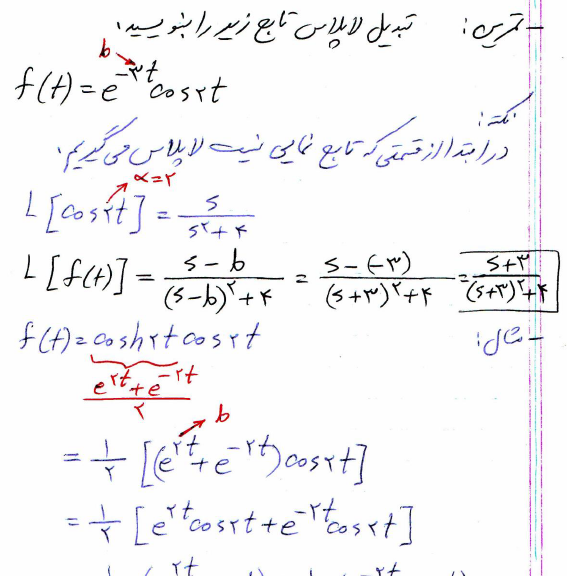 - تمرین: تبدیل لاپلاس تابع زیر را بنویسید.
b
f(t) = e^-۳t cos۲t
نکته:
در ابتدا از قسمتی که تابع نمایی نیست لاپلاس می‌گیریم.
α=۲
L[cos۲t] = s / s^۲+۴
L[f(t)] = s-b / (s-b)^۲+۴ = s-(-۳) / (s+۳)^۲+۴ = s+۳ / (s+۳)^۲+۴
- مثال: f(t) = cosh۲t cos۲t
e^۲t + e^-۲t / ۲
b
= ۱/۲ [(e^۲t + e^-۲t)cos۲t]
= ۱/۲ [e^۲t cos۲t + e^-۲t cos۲t]